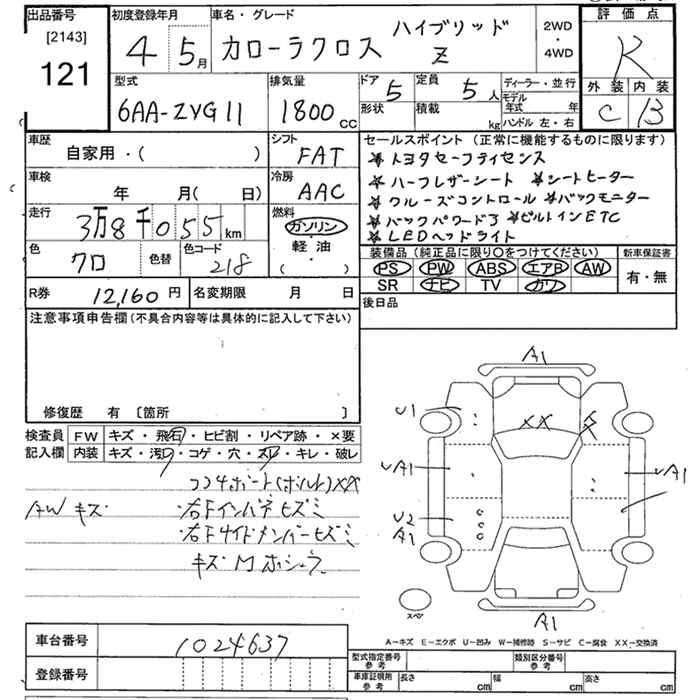 出品番号
[2143]
121
初度登録年月
4 5月
車名・グレード
カローラクロス ハイブリッド Z
2WD
・
4WD
評価点
R
外装 内装
C B
型式
6AA-ZVG11
排気量
1800 CC
ドア 5
形状
定員 5人
積載 kg
ディーラー・並行
モデル年式 年
ハンドル 左・右
車歴
自家用・( )
シフト
FAT
車検
年 月( 日)
冷房
AAC
走行
3万8千055km
燃料
ガソリン
軽油
( )
色
クロ
色替
色コード
218
セールスポイント(正常に機能するものに限ります)
★トヨタセーフティセンス
★ハーフレザーシート ★シートヒーター
★クルーズコントロール ★バックモニター
★バックパワードア ★ビルトインETC
★LEDヘッドライト
装備品(純正品に限り〇をつけてください)
PS PW ABS エアB AW
SR ナビ TV カワ
新車保証書
有・無
R券 12,160円
名変期限 月 日
後日品
注意事項申告欄(不具合内容等は具体的に記入して下さい)
修復歴 有 〔箇所 〕
検査員記入欄
FW キズ・飛石・ヒビ割・リペア跡・×要
内装 キズ・汚レ・コゲ・穴・スレ・キレ・破レ
コアサポート(ボルト)XX
AWキズ ・右Fインパネヒズミ
・右Fサイドメンバーヒズミ
キズ・M
A1
U1
XX
A1
U2
A1
A1
スペア
A1
A-キズ E-エクボ U-凹み W-補修跡 S-サビ C-腐食 XX-交換済
車台番号
1024637
登録番号
型式指定番号
参考
類別区分番号
参考
車庫証明用
参考
長さ cm
幅 cm
高さ cm